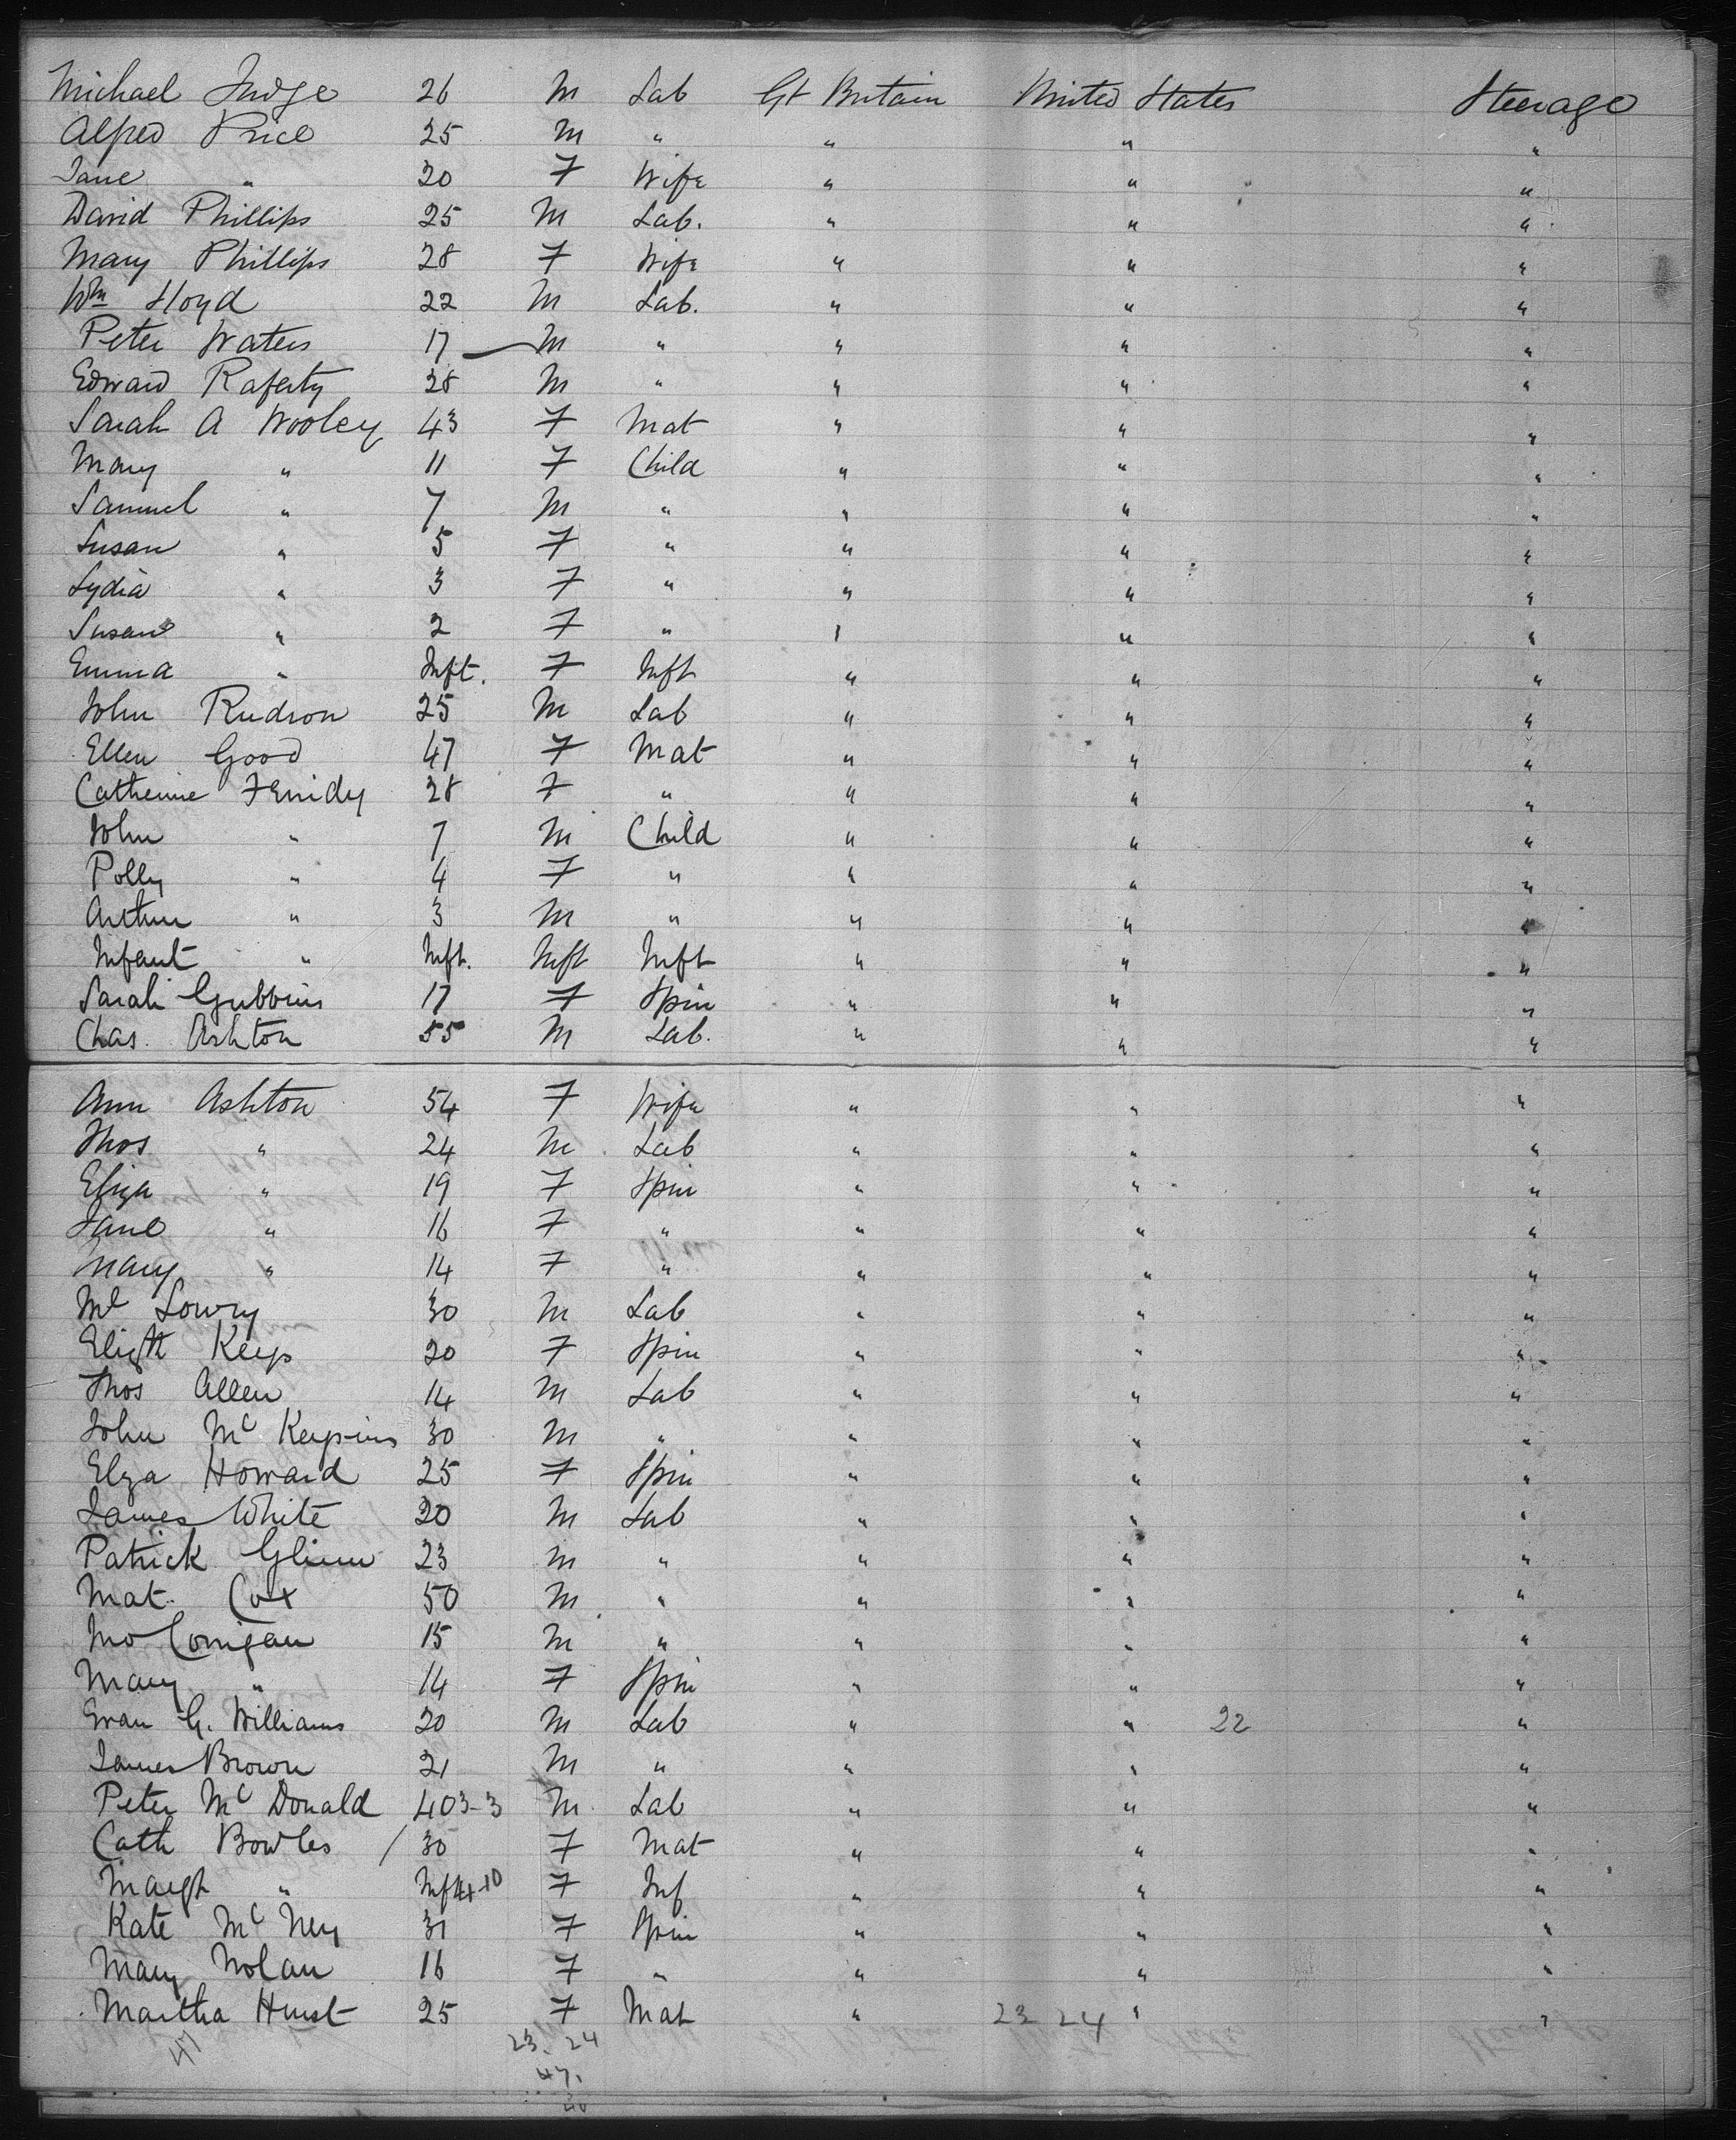 Michael Judge 26 M Lab Gt Britain United States Steerage
Alfred Price 25 M " " " "
Jane " 20 F Wife " " "
David Phillips 25 M Lab. " " "
Mary Phillips 28 F Wife " " "
Wm Lloyd 22 M Lab. " " "
Peter Waters 17 M " " " "
Edward Raferty 28 M " " " "
Sarah A Wooley 43 F Mat " " "
Mary " 11 F Child " " "
Samuel " 7 M " " " "
Susan " 5 F " " " "
Lydia " 3 F " " " "
Susan " 2 F " " " "
Emma " Inft. F Inft " " "
John Rudson 25 M Lab " " "
Ellen Good 47 F Mat " " "
Catherine 28 F " " " "
John " 7 M Child " " "
Polly " 4 F " " " "
Arthur " 3 M " " " "
Infant " Inft. Inft Inft " " "
Sarah Gubbins 17 F Spin " " "
Chas. Ashton 55 M Lab. " " "
Ann Ashton 54 F Wife " " "
Thos " 24 M Lab " " "
Eliza " 19 F Spin " " "
Jane " 16 F " " " "
Mary " 14 F " " " "
Ml Lowry 30 M Lab " " "
Elizth Keys 20 F Spin " " "
Thos Allen 14 M Lab " " "
John 30 M " " " "
Elza Howard 25 F Spin " " "
James White 20 M Lab " " "
Patrick Glinn 23 M " " " "
Mat. Cox 50 M " " " "
Jno Corrigan 15 M " " " "
Mary " 14 F Spin " " "
Evan G. Williams 20 M Lab " " 22 "
James Brown 21 M " " " "
Peter Mc Donald 40 3-3 M Lab " " "
Cath Bowles / 30 F Mat " " "
Margt " Inft 4-10 F Inf " " "
Kate Mc Ney 31 F Spin " " "
Mary Nolan 16 F " " " "
Martha Hurst 25 F Mat " 23 24 " "
47 23. 24
47.